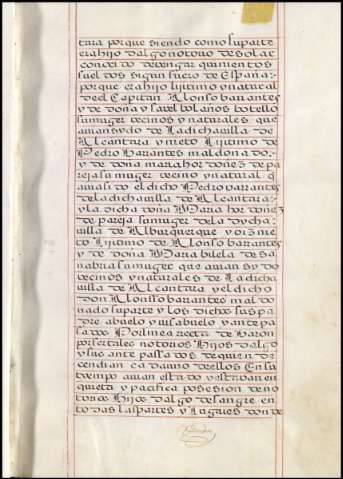 tara porque siendo como su parte
era hijo dalgo notorio de solar
conocido de vengar quinientos
sueldos sigun fuero de España:
porque era hijo lijitimo y natural
de el Capitan Alonso barrantes
y de doña ysavel bolaños botello
su muger vecinos y naturales que
avian sydo de La dicha villa de
Alcantara y nieto Lijitimo de
Pedro barrantes maldonado:
y de doña maria hordoñez de pa
reja su muger vecino y natural q̃
avia sido el dicho Pedro barrantes
de la dicha villa de Alcantara:
y la dicha doña Maria hordoñez
de pareja su muger de la dycha:
villa de Alburquerque y viznie
to Lijitimo de Alonso barrantes
y de doña Maria bilela de sa
nabra su muger que avian sydo
vecinos y naturales de La dicha
villa de Alcantara y el dicho
don Alonsso barrantes maldo
nado su parte y los dichos sus pa
dre abuelo y visabuelo y antepa
sados Por linea recta de baron
por se tales notorios Hijos dalgo
y sus ante passados de quien de
cendian cada uno dellos En su
tiempo avian estado y estavan en
quieta y pacifica posesion de no
torios Hijos dalgo de sangre en
todas las partes y Lugares donde